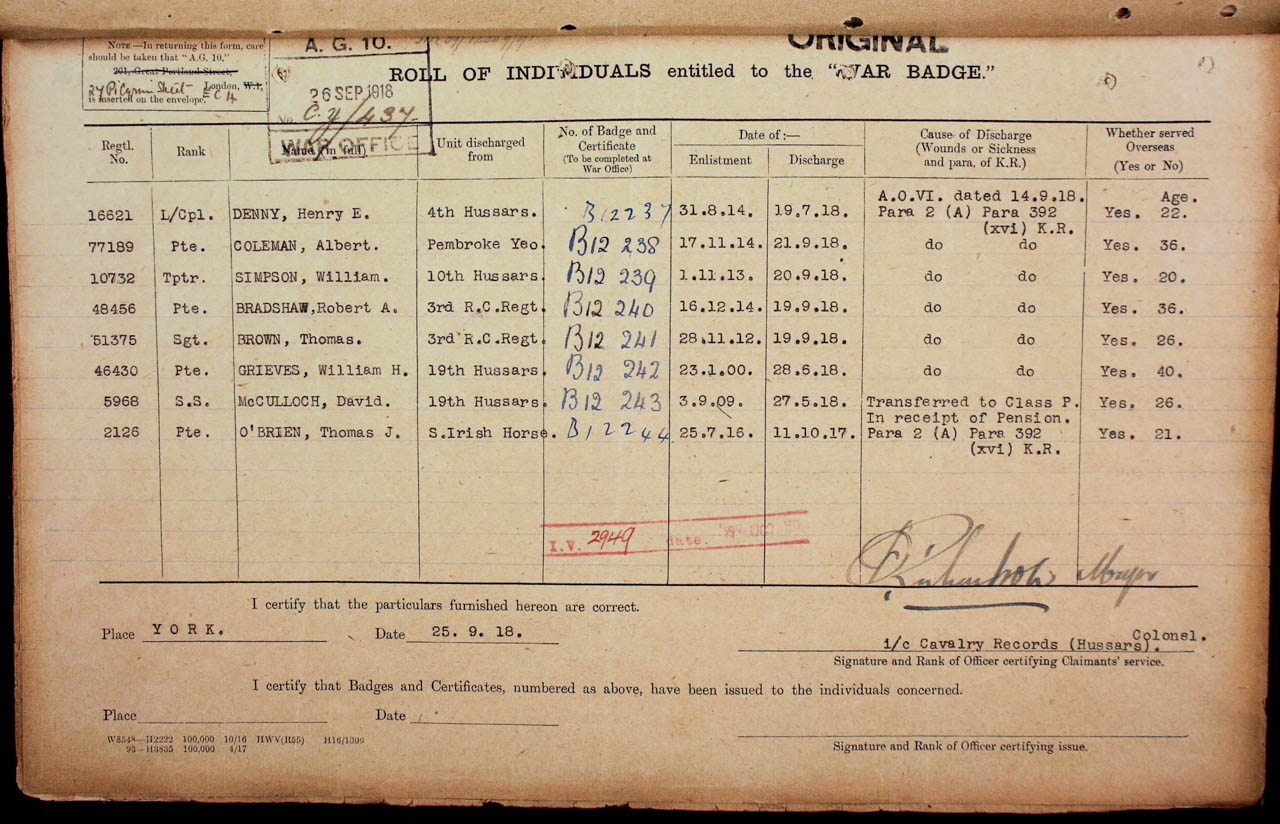 ORIGINAL
NOTE.—In returning this form, care
should be taken that "A.G. 10,"
201, Great Portland Street,
27 Pilgrim Street London, W.1,
E C 4
is inserted on the envelope.
A. G. 10.
26 SEP 1918
No. C.y/437
WAR OFFICE
ROLL OF INDIVIDUALS entitled to the "WAR BADGE."
Regtl. No. Rank Name (in full) Unit discharged from No. of Badge and Certificate (To be completed at War Office) Date of:— Enlistment Discharge Cause of Discharge (Wounds or Sickness and para. of K.R.) Whether served Overseas (Yes or No)
A.O.VI. dated 14.9.18. Age.
16621 L/Cpl. DENNY, Henry E. 4th Hussars. B12237 31.8.14. 19.7.18. Para 2 (A) Para 392 Yes. 22.
(xvi) K.R.
77189 Pte. COLEMAN, Albert. Pembroke Yeo. B12 238 17.11.14. 21.9.18. do do Yes. 36.
10732 Tptr. SIMPSON, William. 10th Hussars. B12 239 1.11.13. 20.9.18. do do Yes. 20.
48456 Pte. BRADSHAW,Robert A. 3rd R.C.Regt. B12 240 16.12.14. 19.9.18. do do Yes. 36.
51375 Sgt. BROWN, Thomas. 3rd R.C.Regt. B12 241 28.11.12. 19.9.18. do do Yes. 26.
46430 Pte. GRIEVES, William H. 19th Hussars. B12 242 23.1.00. 28.6.18. do do Yes. 40.
5968 S.S. McCULLOCH, David. 19th Hussars. B12 243 3.9.09. 27.5.18. Transferred to Class P. Yes. 26.
In receipt of Pension.
2126 Pte. O'BRIEN, Thomas J. S.Irish Horse. B12244 25.7.16. 11.10.17. Para 2 (A) Para 392 Yes. 21.
(xvi) K.R.
I.V. 2949 date.
Major
I certify that the particulars furnished hereon are correct.
Place YORK. Date 25. 9. 18.
Colonel.
i/c Cavalry Records (Hussars).
Signature and Rank of Officer certifying Claimants' service.
I certify that Badges and Certificates, numbered as above, have been issued to the individuals concerned.
Place Date
W8548—H2222 100,000 10/16 HWV(R55) H16/1306
93—H3835 100,000 4/17
Signature and Rank of Officer certifying issue.